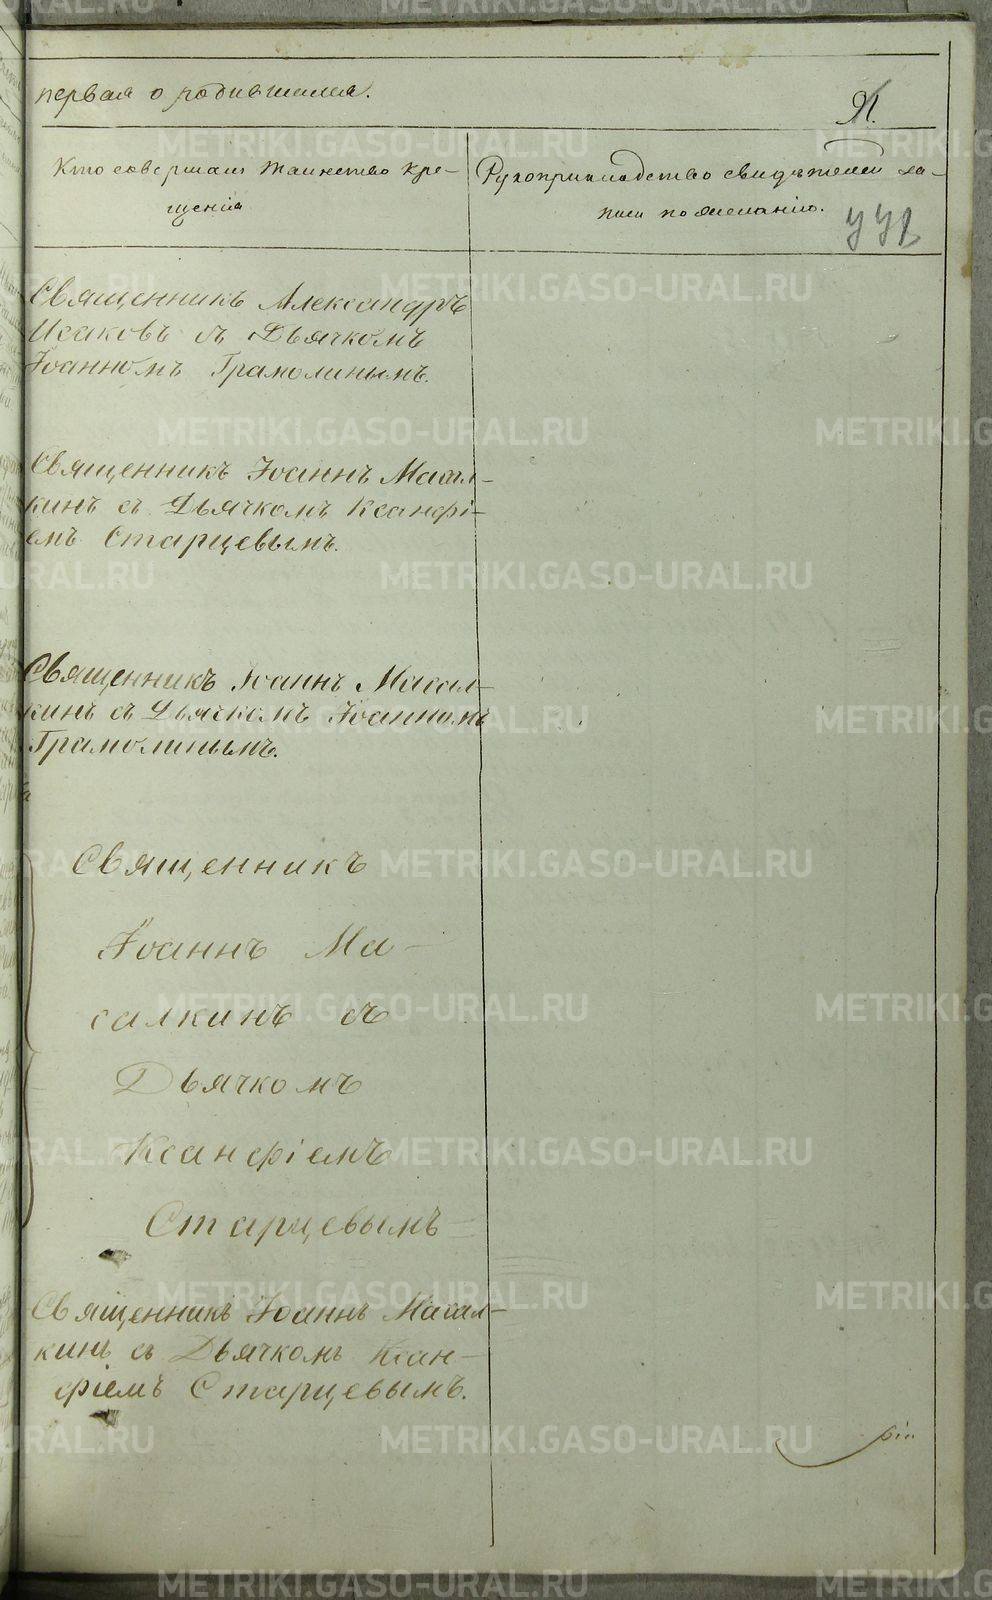 первая о родившихся.
91.
Кто совершалъ таинство кре-
щенія
Рукоприкладство свидѣтелей за-
писи по желанію.
Священникъ Александръ
Исаковъ съ Дьячкомъ
Іоанномъ Грамолинымъ.
Священникъ Іоаннъ Масал-
кинъ съ Дьячкомъ Ксанфі-
емъ Старцевымъ.
Священникъ Іоаннъ Масал-
кинъ съ Дьячкомъ Іоанномъ
Грамолинымъ.
Священникъ
Іоаннъ Ма-
салкинъ съ
Дьячкомъ
Ксанфіемъ
Старцевымъ
Священникъ Іоаннъ Масал-
кинъ съ Дьячкомъ Ксан-
фіемъ Старцевымъ.
METRIKI.GASO-URAL.RU